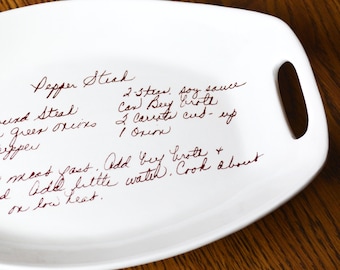 Pepper Steak
ound Steak
green onions
epper
2-3 tbs. soy sauce
Can Beef broth
2 Carrots cut-up
1 Onion
meat fast. Add beef broth +
d Add little water. Cook about
on low heat.